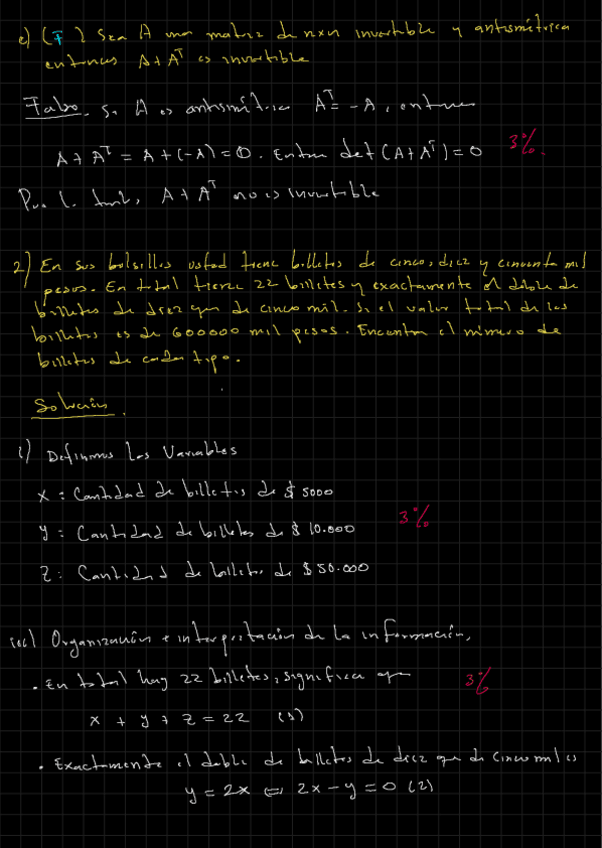 c) (F) Sea A una matriz de nxn invertible y antisimétrica
entonces A+Aᵀ es invertible
Falso. Si A es antisimétrica Aᵀ=-A, entonces
A+Aᵀ = A+(-A)=0. Entonces det(A+Aᵀ)=0 3%
Por lo tanto, A+Aᵀ no es invertible
2) En sus bolsillos usted tiene billetes de cinco, diez y cincuenta mil
pesos. En total tiene 22 billetes y exactamente el doble de
billetes de diez que de cinco mil. Si el valor total de los
billetes es de 600000 mil pesos. Encontrar el número de
billetes de cada tipo.
Solución.
i) Definimos las Variables
x : Cantidad de billetes de $ 5000
y : Cantidad de billetes de $ 10.000 3%
z : Cantidad de billetes de $ 50.000
Organización e interpretación de la información.
• En total hay 22 billetes, significa que 3%
x + y + z = 22 (1)
• Exactamente el doble de billetes de diez que de cinco mil es
y = 2x ⇔ 2x - y = 0 (2)